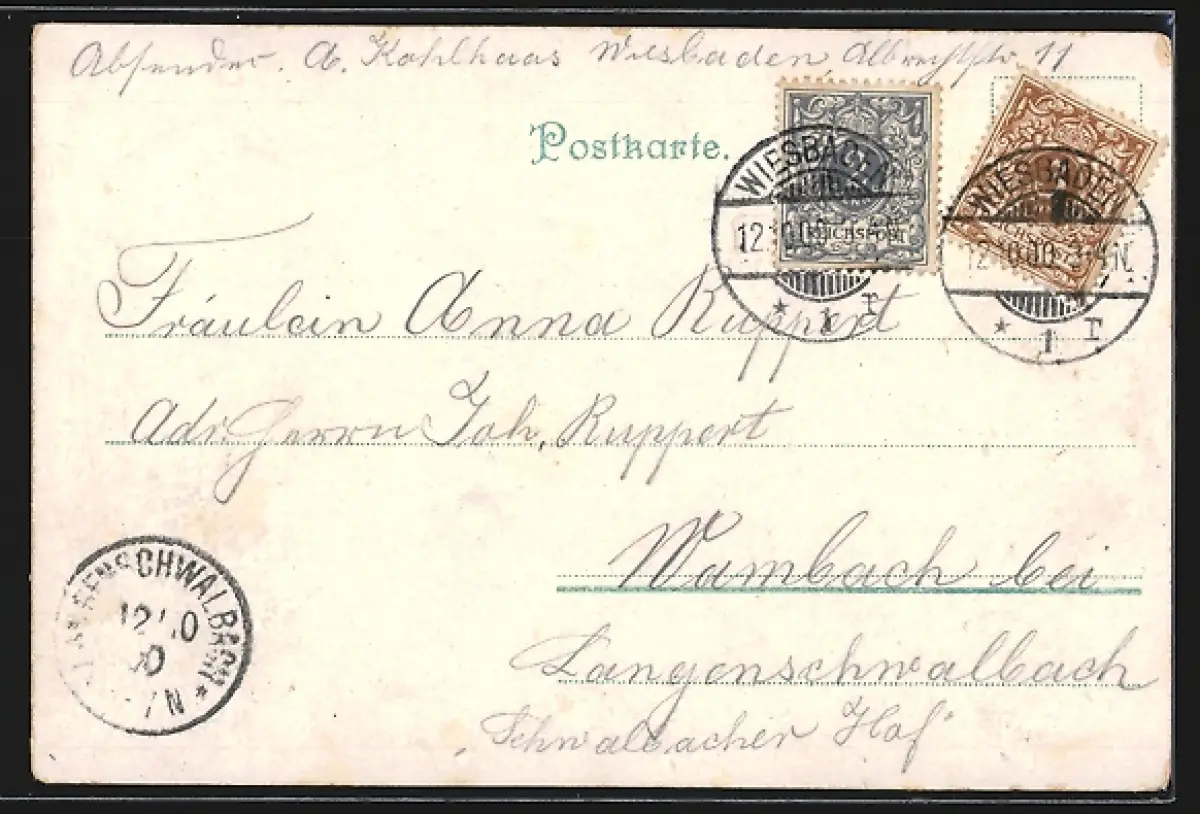 Absender. A. Kohlhaas Wiesbaden, Albrechtstr. 11
Postkarte.
WIESBADEN
12.10.00
* 1 r
2
REICHSPOST
WIESBADEN
12.10.00.3-4N.
* 1 r
Fräulein Anna Ruppert
Adr. Herrn Joh. Ruppert
Wambach bei
Langenschwalbach
„Schwalbacher Hof"
LANGENSCHWALBACH *
12 10
00
N